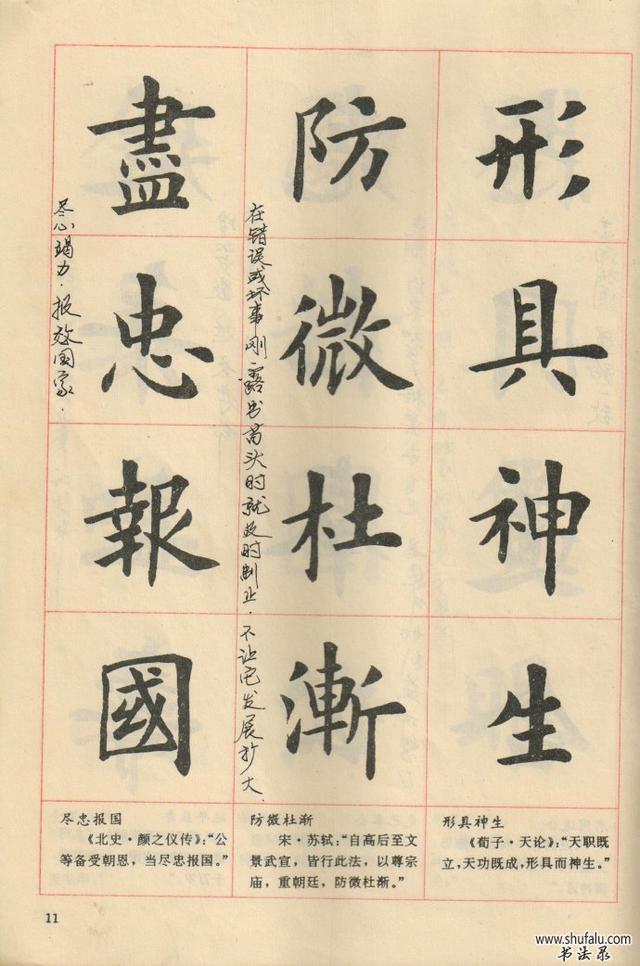 形具神生
防微杜漸
盡忠報國
在错误或坏事刚露出苗头时就及时制止．不让它发展扩大．
尽心竭力．报效国家．
形具神生
《荀子·天论》：“天职既
立，天功既成，形具而神生。”
防微杜渐
宋·苏轼：“自高后至文
景武宣，皆行此法，以尊宗
庙，重朝廷，防微杜渐。”
尽忠报国
《北史·颜之仪传》：“公
等备受朝恩，当尽忠报国。”
11
www.shufalu.com
书法录